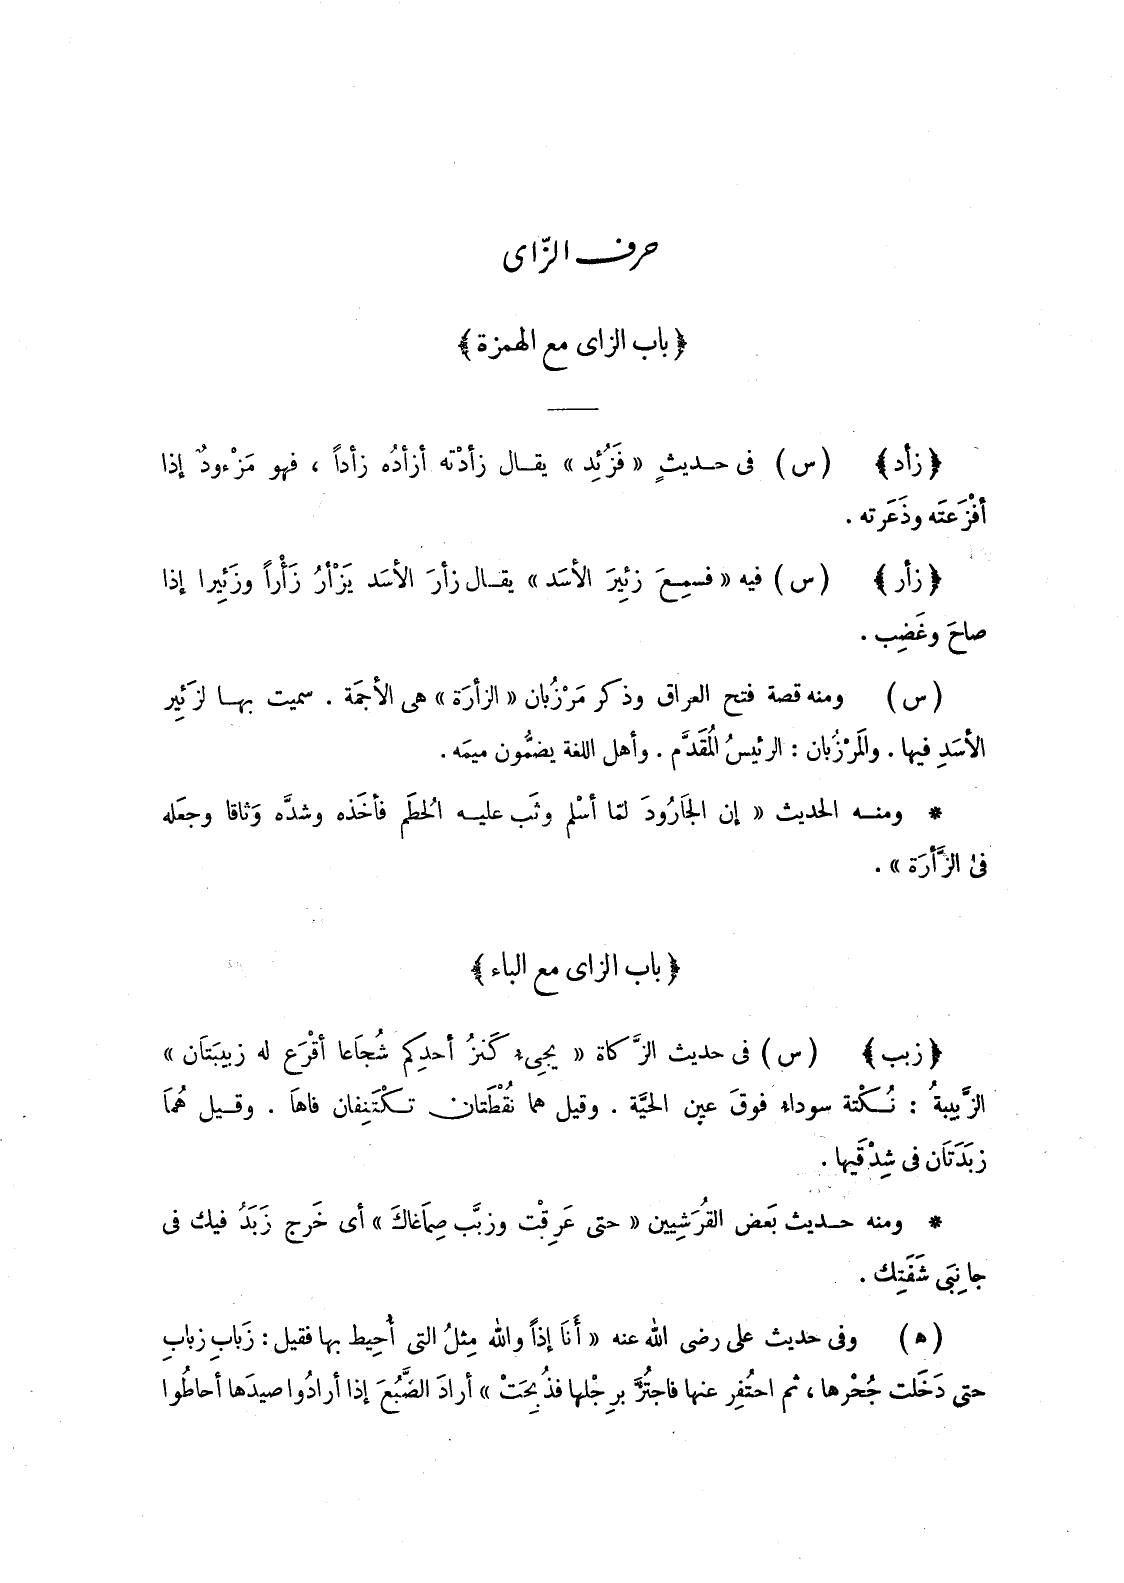 حرف الزّاى
﴿ باب الزاى مع الهمزة ﴾
﴿ زأد ﴾ (س) فى حديثٍ « فَزُئِد » يقال زأدْته أزأدُه زأداً ، فهو مَزْءودٌ إذا
أفْزَعتَه وذَعَرته .
﴿ زأر ﴾ (س) فيه « فسمِعَ زئِيرَ الأسَد » يقال زأرَ الأسَد يَزْأرُ زَأْراً وزَئِيرا إذا
صاحَ وغَضِب .
(س) ومنه قصة فتح العراق وذكر مَرْزُبان « الزأرَة » هى الأجَمَة . سميت بها لزَئِير
الأسَدِ فيها . والمَرْزُبان : الرئيسُ المُقَدَّم . وأهل اللغة يضمُّون ميمَه .
* ومنه الحديث « إن الجَارُودَ لمّا أسْلم وثَب عليه الحُطَم فأخَذه وشدَّه وَثاقا وجعَله
فى الزَّأرَة » .
﴿ باب الزاى مع الباء ﴾
﴿ زبب ﴾ (س) فى حديث الزَّكاة « يجِىء كَنزُ أحدِكم شُجَاعا أقْرَع له زبيبَتَان »
الزَّبيبةُ : نُكْتة سوداء فوقَ عين الحيَّة . وقيل هما نُقْطَتان تكْتَنِفان فاهَا . وقيل هُمَا
زبَدَتَان فى شِدْقَيها .
* ومنه حديث بَعض القُرَشِيين « حتى عَرِقْت وزبَّب صِمَاغاكَ » أى خَرج زَبَدُ فيك فى
جانِبَى شَفَتِك .
(ه) وفى حديث على رضى الله عنه « أَنَا إذاً والله مِثلُ التى أُحِيط بها فقيل : زَبابِ زبابِ
حتى دَخَلت جُحْرها ، ثم احتُفِر عنها فاجتُرَّ برِجْلها فذُبِحَتْ » أرادَ الضَّبُعَ إذا أرادُوا صيدَها أحاطُوا